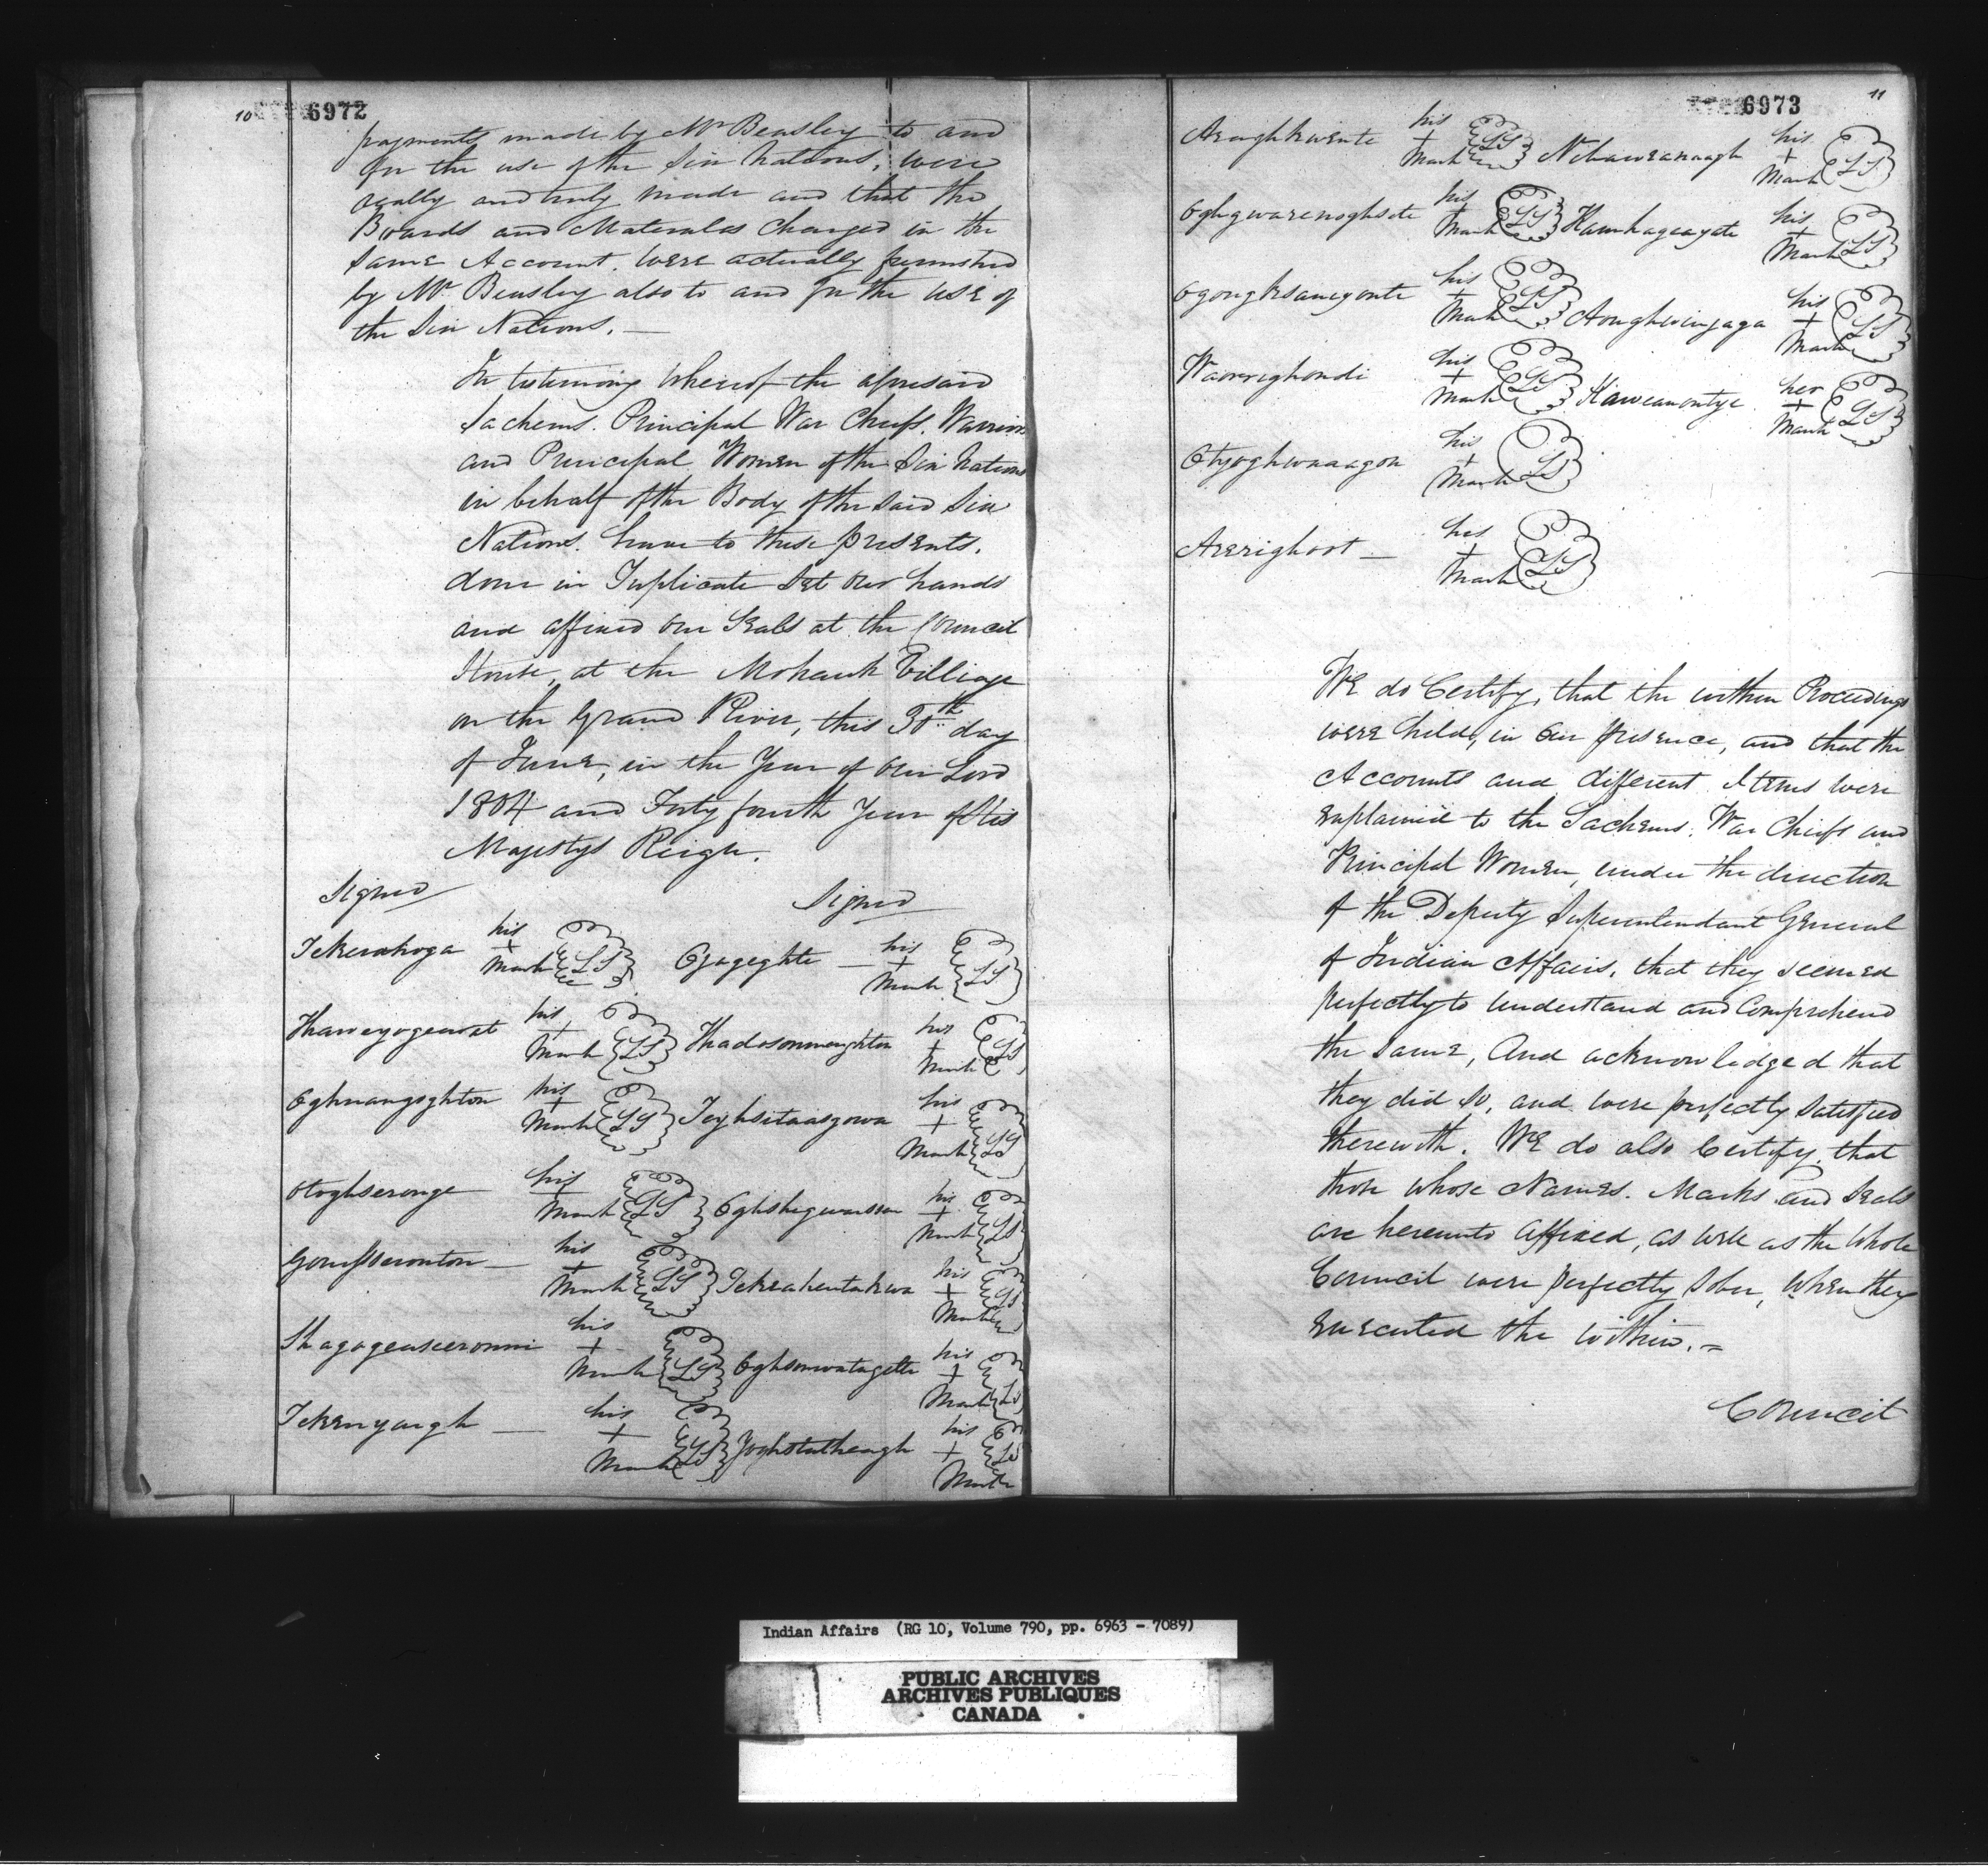 10 6972
payments made by Mr Beasley to and
for the use of the Six Nations, were
really and truly made and that the
Boards and Materials Charged in the
Same Account. were actually furnished
by Mr Beasley also to and for the use of
the Six Nations. —
In testimony whereof the aforesaid
Sachems. Principal War Chiefs. Warriors
and Principal Women of the Six Nations
in behalf of the Body of the said Six
Nations. have to these presents.
done in Triplicate Set our hands
and affixed our Seals at the Council
House, at the Mohawk Village
on the Grand River, this 30th day
of June, in the Year of Our Lord
1804 and Forty fourth Year of His
Majestys Reign.
Signed Signed
Tekerahoga his + Mark LS Ojageghte — his + Mark LS
Thaweyogearat his + Mark LS Thadosonweaghton his + Mark LS
Oghnangoghton his + Mark LS Teyhsitaasgowa his + Mark LS
Otoghseronge his + Mark LS Oghshegwarison his + Mark LS
Gonesseronton — his + Mark LS Tekeahentakwa his + Mark LS
Shagogeaseronni his + Mark LS Oghsonwatagette his + Mark LS
Tekenyough — his + Mark LS Yoghstatheagh his + Mark LS
6973 11
Areughkwente his + Mark LS Nehaweanaagh his + Mark LS
Oghgwarenoghsete his + Mark LS Kanhageayate his + Mark LS
Ogonghsaneyonte his + Mark LS Aonghwenjaga his + Mark LS
Waorrighondi his + Mark LS Kaweanontye her + Mark LS
Otyoghwanagon his + Mark LS
Arerighoot — his + Mark LS
We do Certify, that the within Proceedings
were held, in our presence, and that the
Accounts and different Items were
explained to the Sachems. War Chiefs and
Principal Women, under the direction
of the Deputy Superintendant General
of Indian Affairs, that they seemed
perfectly to understand and Comprehend
the same, And acknowledged that
they did so, and were perfectly satisfied
therewith. We do also Certify, that
those whose Names. Marks and Seals
are hereunto affixed, as well as the Whole
Council were perfectly Sober, when they
executed the within. =
Council
Indian Affairs (RG 10, Volume 790, pp. 6963 - 7089)
PUBLIC ARCHIVES
ARCHIVES PUBLIQUES
CANADA